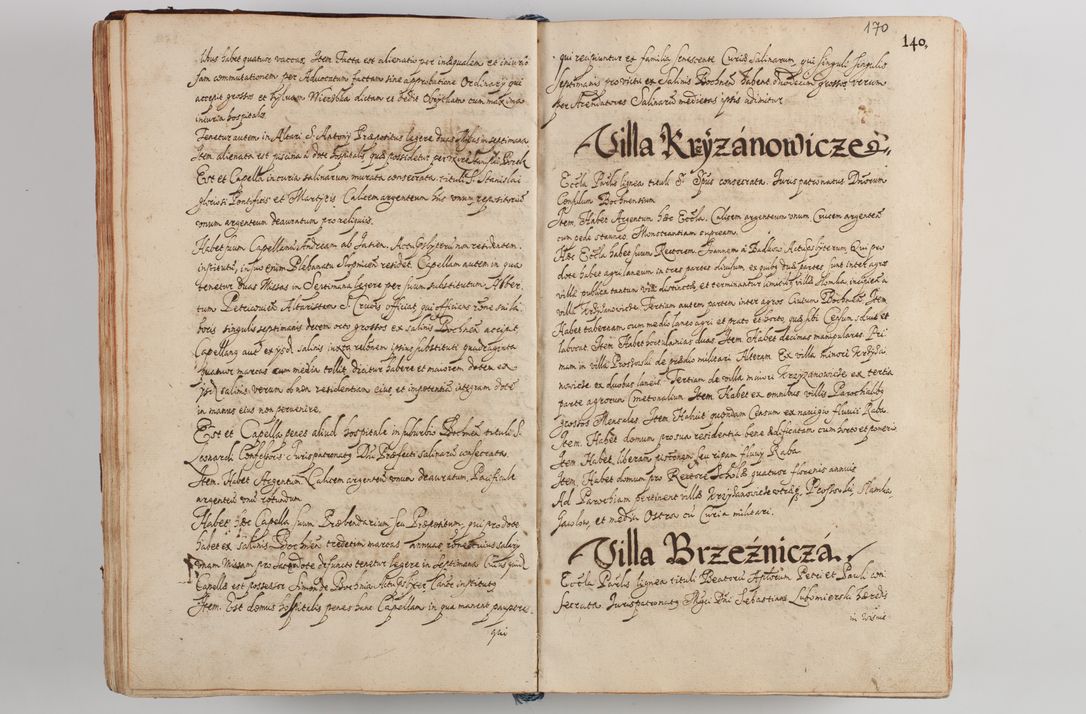 tibus habet quatuor vaccas, Item Facta est alienatio per inaequalem et iniurio
sam commutationem per Aduocatum factam sine approbatione Ordinarij qui
accepit grossos et hyluam dictam et dedit cum maxima
iniuria hospitalis.
Tenetur autem in Altari S. Antonij Præpositus legere duas Missas in septimana
Item alienata est piscina a dote hospitalis quæ possidetur per
Est et Capella in curia salinarum murata consecrata, tituli S. Stanislai
gloriosi Pontificis et Martyris Calicem argenteum hic vnum
vnum argenteum deauratum pro reliquijs.
Habet suum Capellanum Andream ab Actu pbyterum non residentem
institutum, in suo enim Plebanatu residet. Capellam autem in qua
tenetur duas Missas in Septimana legere per suum substitutum Alber
tum Altaristam S. Crucis officiat, qui officians rone sui la
boris singulis septimanis decem octo grossos ex salinis Bochnen accipit,
Capellanus aute ex ysd. salinis iuxta relõnem ipsius substituti quadraginta
quatuor marcas cum media tollit, dicitur habere et maiorem dotem ex
ipsis salinis, verum ob non residentiam eius, et inpetentiã integram dote
in manus eius non peruenire.
Est et Capella penes aliud hospitale in suburbio Bochnen tituli S.
Leonardi Confessoris Iurispatronatus Dni Præfecti salinarũ consecrata.
Item. Habet Argentum Calicem argenteum vnum deauratum Pacificale
argenteũ vnũ rotundum
Habet hæc Capella suum Præbendarium seu Præpositum, qui pro dote
habet ex salinis Bochnen tredecim marcas annuas rone cuius salary
vnam Missam pro sacerdote defuncto tenetur legere in Septimana Cuius quid
Capellæ est possessor Simon de Bochnia
Item. Est domus hospitalis penes hanc Capellam in qua manent pauperes
qui
170
140,
qui recipiuntur ex familia senescente Curiæ Salinarum, qui singuli singulis
septimanis pro victu ex Salinis Bochnen habent duodecim grossos verum
per Arendatores Salinarũ medietas ipsis adimitur
Villa Krÿzánowicze.
Eccla Parlis lignea tituli S. Spûs consecrata. Iuris patronatus Dnorum
Consulum Bochnensium
Item. Habet Argentum hæc Eccla. Calicem argenteum vnum Crucem argenteã
cum pede stanneo, Monstrantiam cupream.
Hæc Eccla habet suum Rectorem Ioannem a Actu pbyterum Qui pro
dote habet agri laneum in tres partes diuisum ex quib duæ partes sunt inter agros
villæ publica tantum via distincti, et terminantur limitibus villæ Slomka, incipient a
villa Krzyzanowicze. Tertiam autem partem inter agros Ciuium Bochnen. Item
Habet tabernam cum medio laneo agri et prato et horto, quæ sibi Censum soluit et
laborat. Item Habet hortulanias duas. Item Habet decimas manipulares. Pri
mam in villa Proszowki de prædio militari Alteram Ex villa minori Krzyza
nowicze ex duobus laneis. Tertiam de villa maiori Krzyzanowicze ex tertia
parte agrorum Cmetonalium. Item. Habet ex omnibus villis Parochialib
grossos Mensales. Item. Habuit quondam Censum ex nauigio fluuij Raba.
Item. Habet domum pro sua residentia bene ædificatam cum horto et pomerio
Item Habet liberam piscationem seu ripam fluuij Raba
Item. Habet domum pro Rectore Scholæ quatuor florenis annuis
Ad Parochiam pertinent villæ Krzyżanowicze Proszowki, Slamka,
et media Ostra cũ Curia militari.
Villa Brzeźnicza.
Eccla Parlis lignea tituli Beatorũ Aplorum Petri et Pauli con
secrata Iurispatronatus Mgci Dni Sebastiani Lubomierski hæredis
in Wisnic